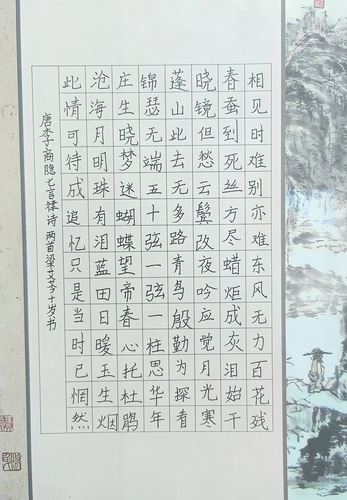 相见时难别亦难东风无力百花残
春蚕到死丝方尽蜡炬成灰泪始干
晓镜但愁云鬓改夜吟应觉月光寒
蓬山此去无多路青鸟殷勤为探看
锦瑟无端五十弦一弦一柱思华年
庄生晓梦迷蝴蝶望帝春心托杜鹃
沧海月明珠有泪蓝田日暖玉生烟
此情可待成追忆只是当时已惘然
唐李商隐七言律诗两首梁十岁书